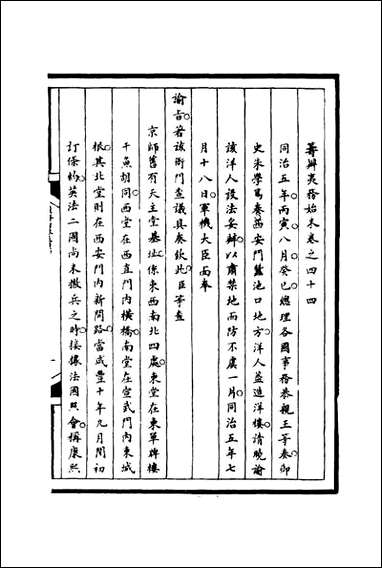 籌辦夷務始末卷之四十四
同治五年丙寅八月癸巳總理各國事務恭親王等奏御
史朱學篤奏西安門蠶池口地方洋人蓋造洋樓請曉諭
該洋人設法妥辦以肅禁地而防不虞一片同治五年七
月十八日軍機大臣面奉
諭旨著該衙門查議具奏欽此臣等查
京師舊有天主堂基址係東西南北四處東堂在東單牌樓
干魚胡同西堂在西直門內橫橋南堂在宣武門內東城
根其北堂則在西安門內新開路當咸豐十年九月間初
訂條約英法二國尚未撤兵之時接據法國照會稱康熙